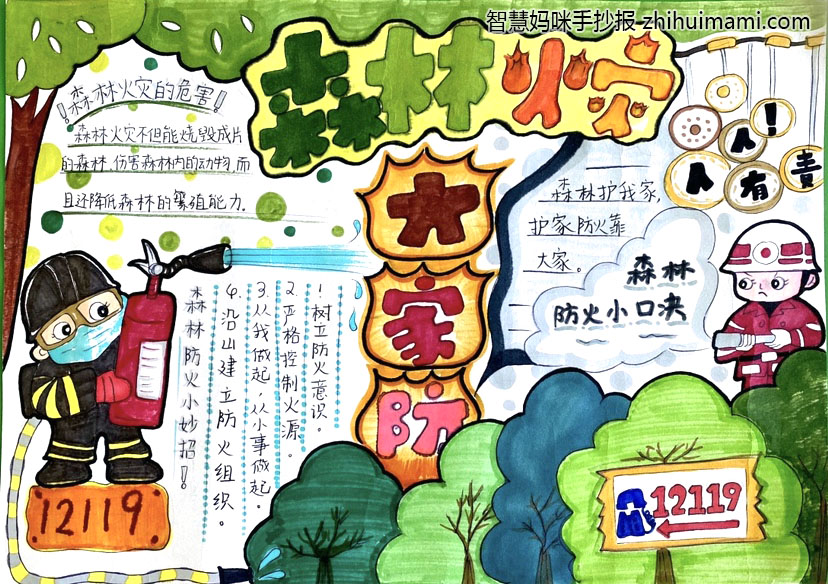 智慧妈咪手抄报 zhihuimami.com
森林火灾
大家防
!森林火灾的危害!
森林火灾不但能烧毁成片
的森林,伤害森林内的动物,而
且还降低森林的繁殖能力.
森林防火小妙招!
1.树立防火意识。
2.严格控制火源。
3.从我做起,从小事做起。
4.沿山建立防火组织。
12119
人!
人有责
森林护我家,
护家防火靠
大家。
森林
防火小口决
12119